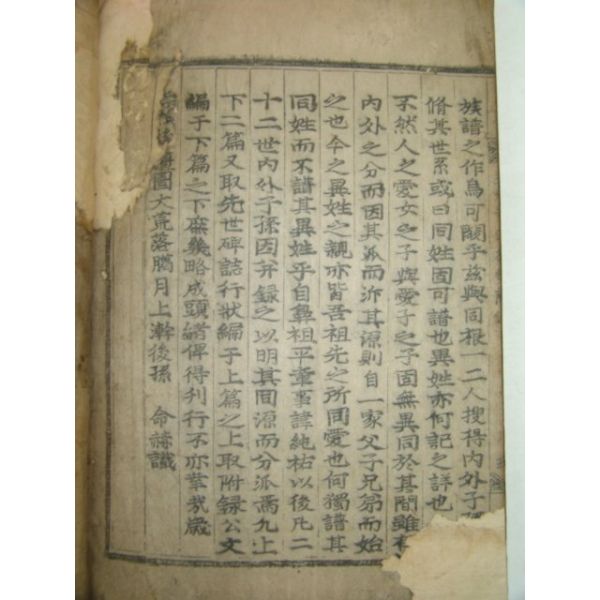 族譜之作烏可闕乎玆與同根一二人搜得內外子孫
脩其世系或曰同姓固可譜也異姓亦何記之詳也
不然人之愛女之子與愛子之子固無異同於其間雖有
內外之分而因其派而泝其源則自一家父子兄弟而始
之也今之異姓之親亦皆吾祖先之所同愛也何獨譜其
同姓而不譜其異姓乎自鼻祖平章事諱純祐以後凡二
十二世內外子孫因幷錄之以明其同源而分派焉凡上
下二篇又取先世碑誌行狀編于上篇之上取附錄公文
編于下篇之下庶幾略成頭緖俾得刊行不亦幸哉歲
圖大荒落臈月上澣後孫 命 識